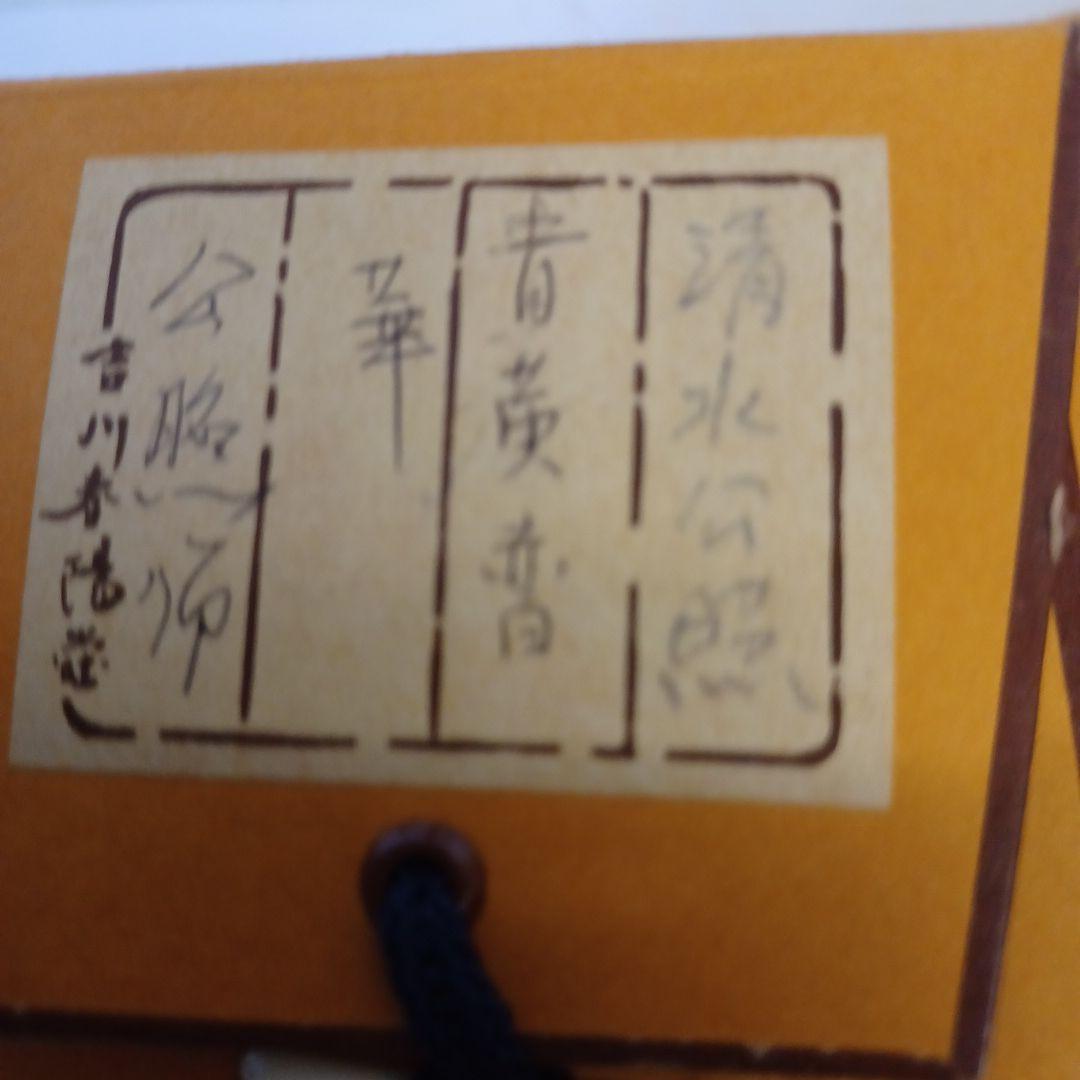 清水公照
青黄書
華
公照師
吉川春陽堂